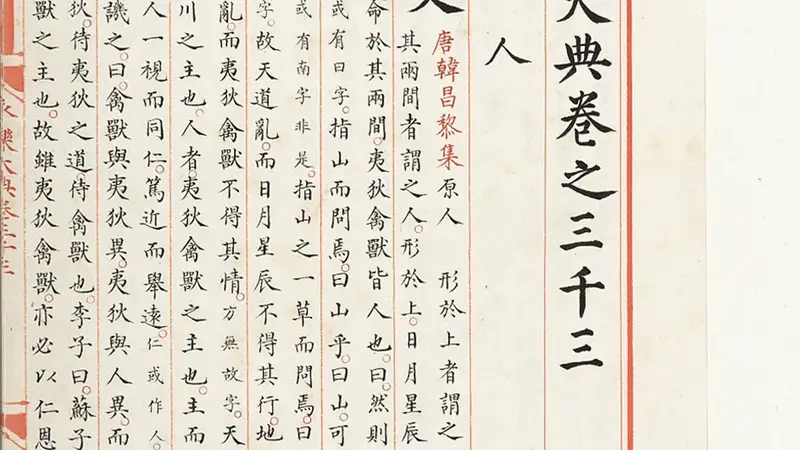 大典卷之三千三
人
唐韓昌黎集 原人 形於上者謂之
其兩間者謂之人。形於上。日月星辰
命於其兩間。夷狄禽獸皆人也。曰。然則
或有曰字。指山而問焉。曰山乎。曰山。可
或有南字非是。指山之一草而問焉。曰
字。故天道亂。而日月星辰不得其行。地
亂。而夷狄禽獸不得其情。方無故字。天
川之主也。人者。夷狄禽獸之主也。主而
人一視而同仁。篤近而舉遠。仁或作人。
譏之。曰。禽獸與夷狄異。夷狄與人異。而
狄。待夷狄之道。待禽獸也。李子曰。蘇子
獸之主也。故雖夷狄禽獸。亦必以仁恩
永樂大典卷三千三